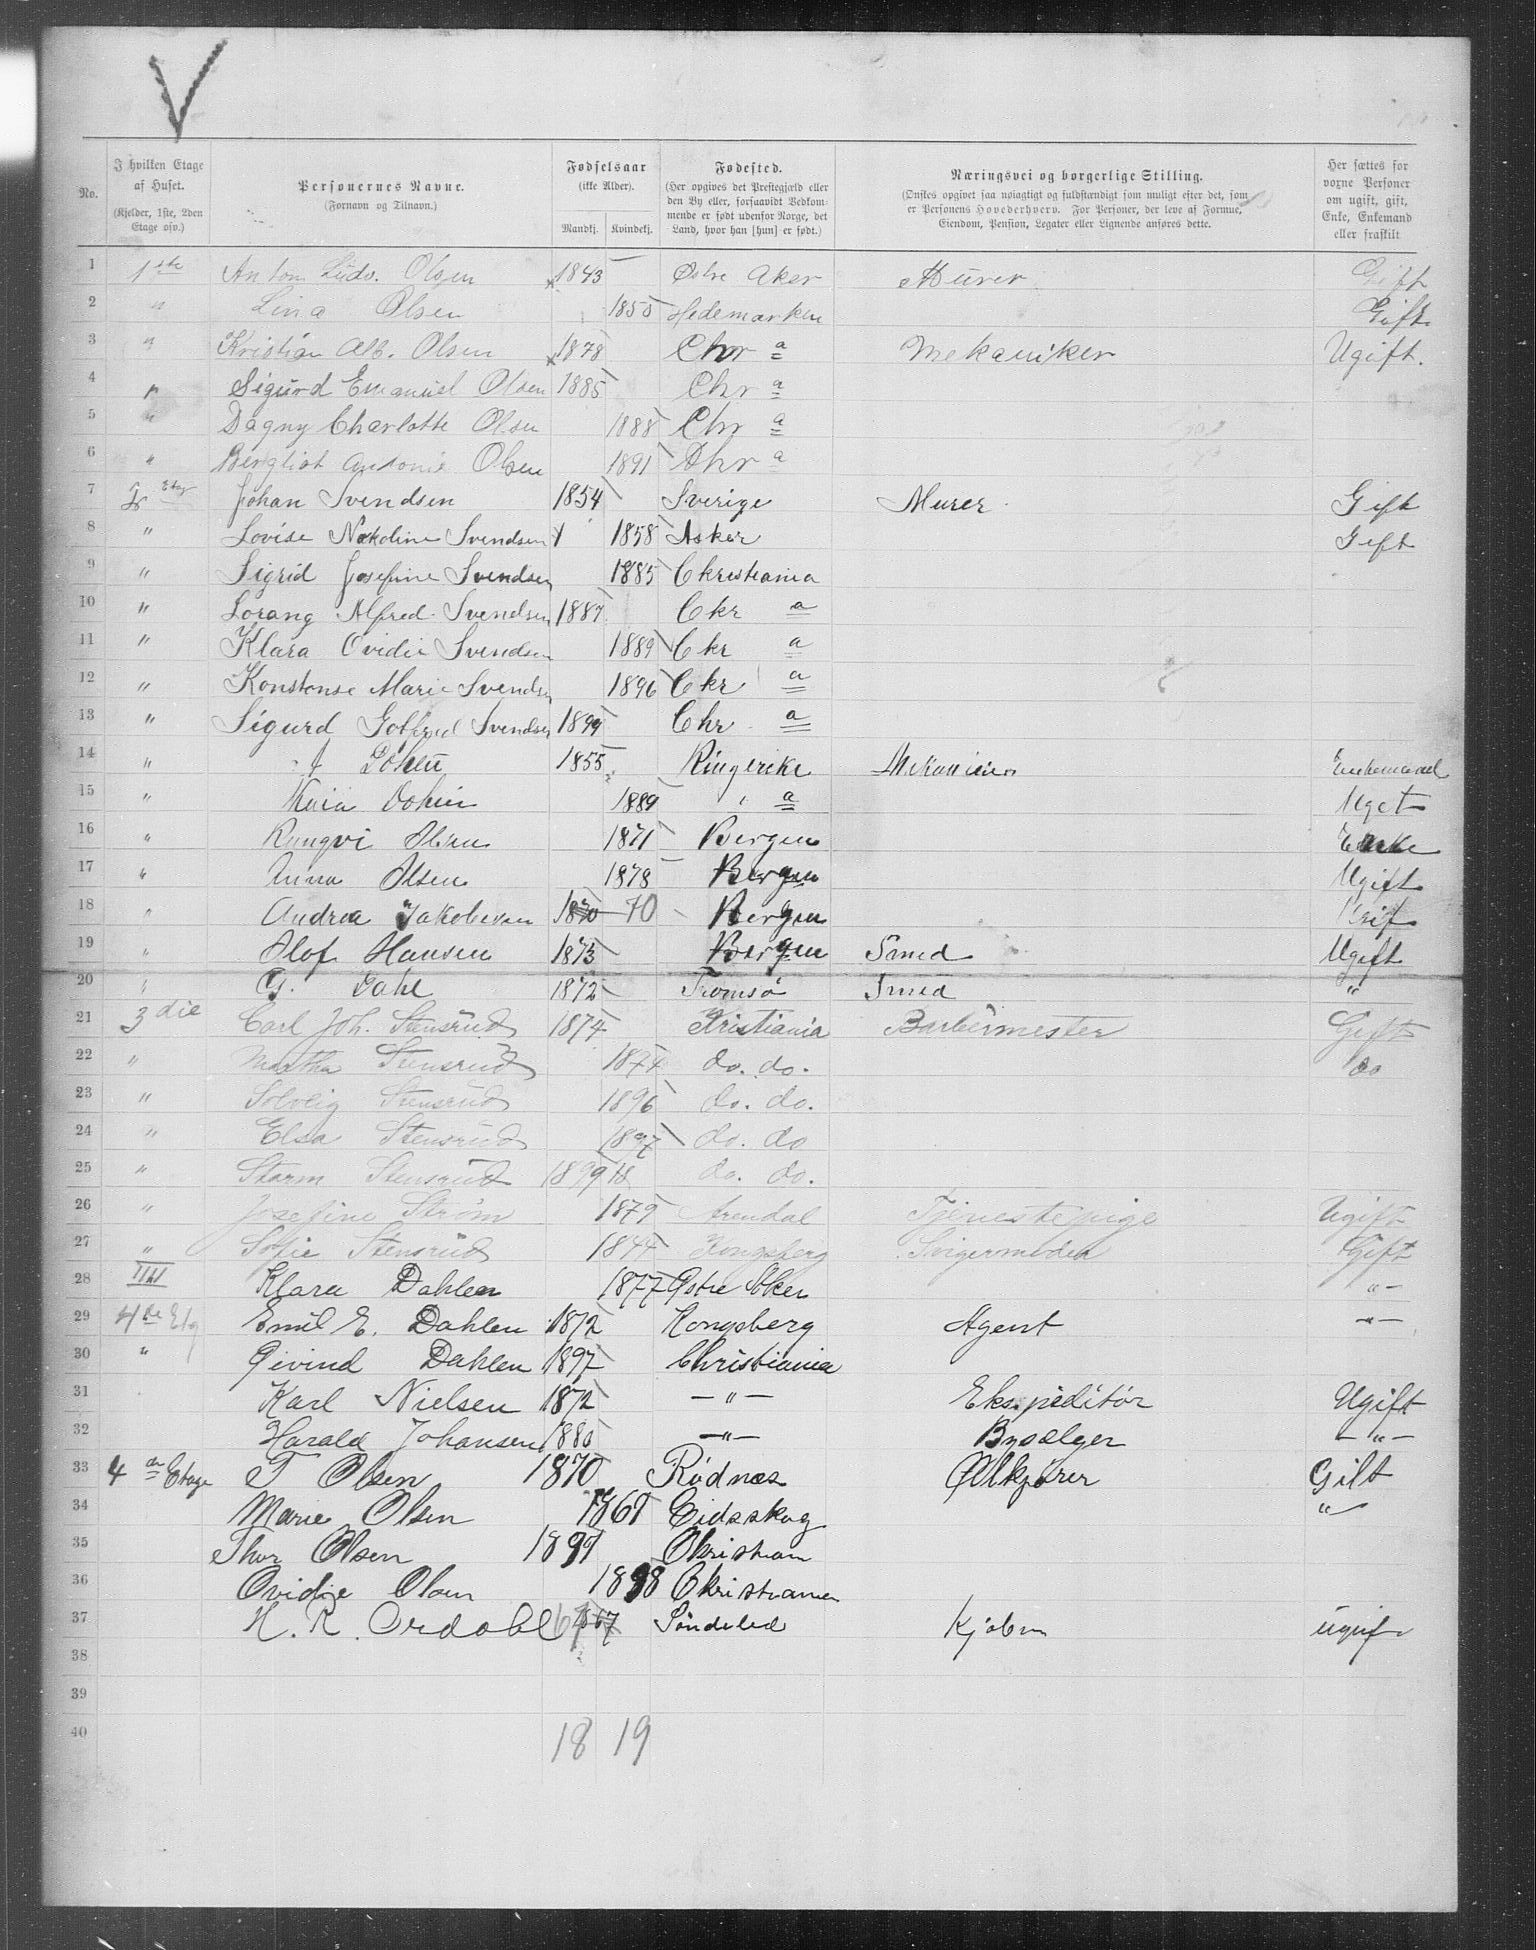 V
No.
I hvilken Etage af Huset. (Kjelder, 1ste, 2den Etage osv.)
Personernes Navne. (Fornavn og Tilnavn.)
Fødselsaar (ikke Alder). Mandkj. Kvindekj.
Fødested. (Her opgives det Prestegjæld eller den By eller, forsaavidt Vedkommende er født udenfor Norge, det Land, hvor han [hun] er født.)
Næringsvei og borgerlige Stilling. (Ønskes opgivet saa nøiagtigt og fuldstændigt som muligt efter det, som er Personens Hovederhverv. For Personer, der leve af Formue, Eiendom, Pension, Legater eller Lignende anføres dette.
Her sættes for voxne Personer om ugift, gift, Enke, Enkemand eller fraskilt
1 1ste Anton Ludv. Olsen 1843 Østre Aker Murer Gift
2 " Lina Olsen 1855 Hedemarken Gift
3 " Kristian Alb. Olsen 1878 Chr a Mekaniker Ugift.
4 " Sigurd Emanuel Olsen 1885 Chr a
5 " Dagny Charlotte Olsen 1888 Chr a
6 " Bergliot Antonie Olsen 1891 Chr a
7 2 Etag Johan Svendsen 1854 Sverige Murer Gift
8 " Lovise Svendsen 1858 Asker Gift
9 " Sigrid Josefine Svendsen 1885 Christiania
10 " Lorang Alfred Svendsen 1887 Chr a
11 " Klara Ovidie Svendsen 1889 Chr a
12 " Konstanse Marie Svendsen 1896 Chr a
13 " Sigurd Gotfred Svendsen 1899 Chr a
14 " 1855 Ringerike Enkemand
15 " 1889 " a
16 " Olsen 1871 Bergen Enke
17 " Anna Olsen 1878 Bergen Ugift
18 " Andrea Jakobsen 1870 70 Bergen
19 " Olof Hansen 1873 Bergen Smed Ugift
20 " G. Dahl 1872 Tromsø Smed "
21 3die Carl Joh. Stensrud 1874 Kristiania Barbermester Gift
22 " Martha Stensrud 1874 do. do. do
23 " Solveig Stensrud 1896 do. do.
24 " Elsa Stensrud 1897 do. do
25 " Storm Stensrud 1899 18 do. do.
26 " Josefine Strøm 1879 Arendal Tjenestepige Ugift
27 " Sofie Stensrud 1844 Kongsberg Svigermoder Gift
28 Klara Dahlen 1877 Østre Aker " -
29 4de Etg Emil E. Dahlen 1872 Kongsberg Agent - " -
30 " Øivind Dahlen 1897 Christiania
31 Karl Nielsen 1872 - " - Ekspeditør Ugift
32 Harald Johansen 1880 - " - Bysælger - " -
33 4de Etage T Olsen 1870 Rødnæs Ølkjører Gift
34 Marie Olsen 1868 Eidsskog "
35 Thor Olsen 1899 Christian
36 Ovidie Olsen 1898 Christiania
37 H. R. Ordahl 67 1867 Søndeled Ugift
38
39
40
18 19